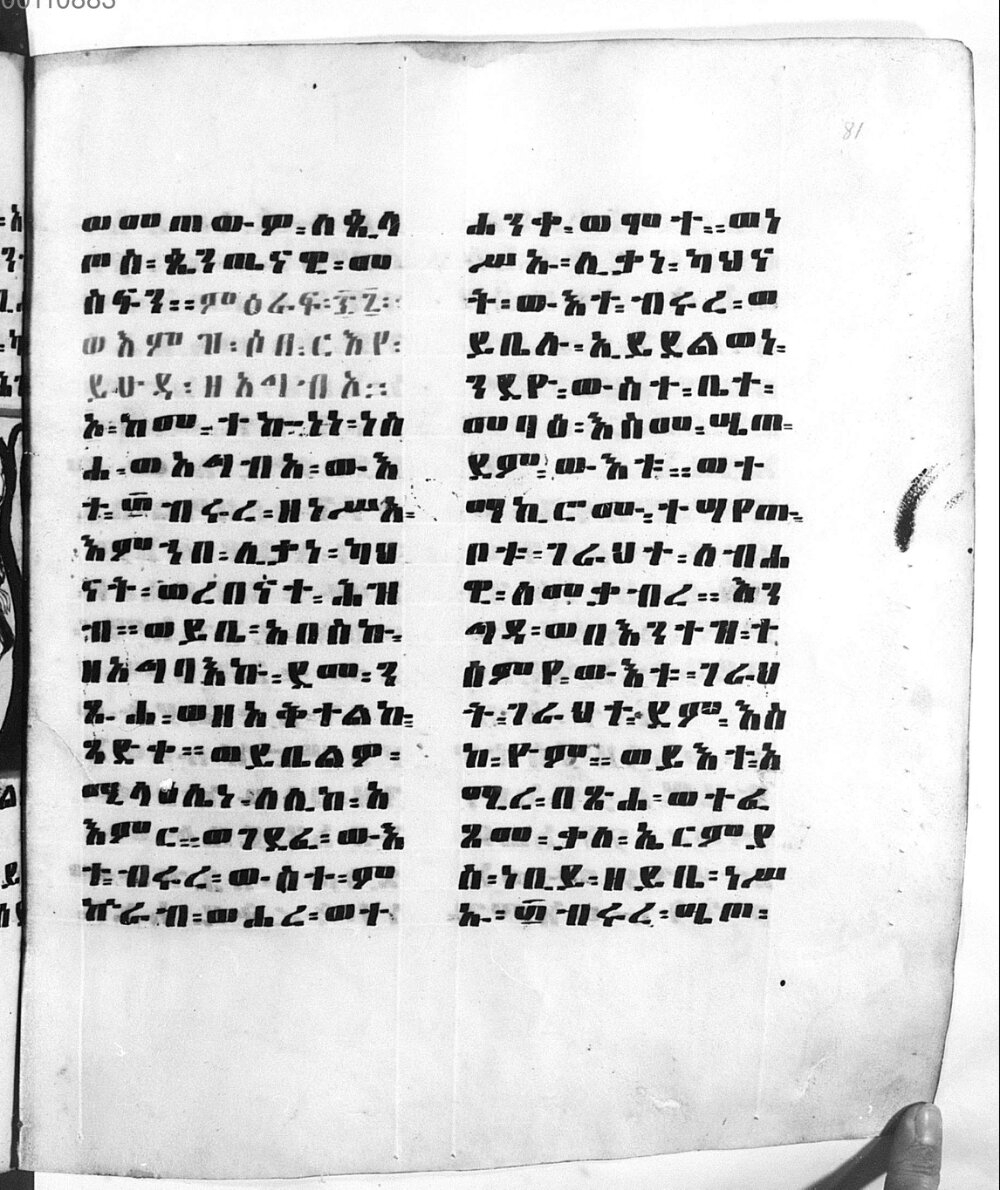 ወመጠው፡ም፡ለጲላ
ጦስ፡ጴንጤናዊ፡መ
ስፍን።ምዕራፍ፡፲፯፡
ወእምዝ፡ሶበ፡ርእየ፡
ይሁዳ፡ዘአግብአ።
እ፡ከመ፡ተኰነነ፡ነስ
ሐ፡ወአግብአ፡ውእ
ተ፡፴ብሩረ፡ዘነሥአ፡
እምኀበ፡ሊቃነ፡ካህ
ናት፡ወረበናተ፡ሕዝ
ብ።ወይቤ፡አበስኩ፡
ዘአግባእኩ፡ደመ፡ን
ጹሐ፡ወዘአቅተልኩ፡
ጻድቀ።ወይቤልዎ፡
ሚላዕሌነ፡ለሊከ፡አ
እምር።ወገደፈ፡ውእ
ተ፡ብሩረ፡ውስተ፡ም
ኵራብ፡ወሐረ፡ወተ
ሐንቀ፡ወሞተ።ወነ
ሥኡ፡ሊቃነ፡ካህና
ት፡ውእተ፡ብሩረ፡ወ
ይቤሉ፡ኢይደልወነ፡
ንደዮ፡ውስተ፡ቤተ፡
መባዕ፡እስመ፡ሤጠ፡
ደም፡ውእቱ።ወተ
ማኪሮሙ፡ተሣየጡ፡
ቦቱ፡ገራህተ፡ለብሐ
ዊ፡ለመቃብረ።እን
ግዳ፡ወበእንተዝ፡ተ
ሰምየ፡ውእቱ፡ገራህ
ት፡ገራህተ፡ደም፡እስ
ከ፡ዮም።ወይእተ፡አ
ሚረ፡በጽሐ፡ወተፈ
ጸመ፡ቃለ፡ኤርምያ
ስ፡ነቢይ፡ዘይቤ፡ነሥ
ኡ፡፴ብሩረ፡ሤጦ፡
81